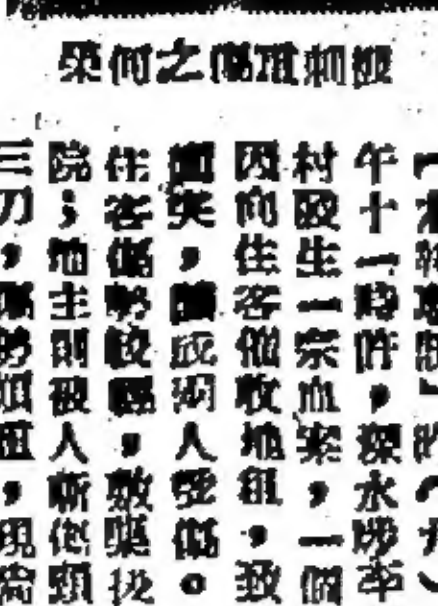 被刺重傷之何榮
午十一時許，深水埗
村發生一宗血案，一個
因向住客催收地租，致
突，釀成兩人受傷。
住客傷勢較輕，敷藥後
院；地主則被人斬傷頸
三刀，傷勢頗重，現